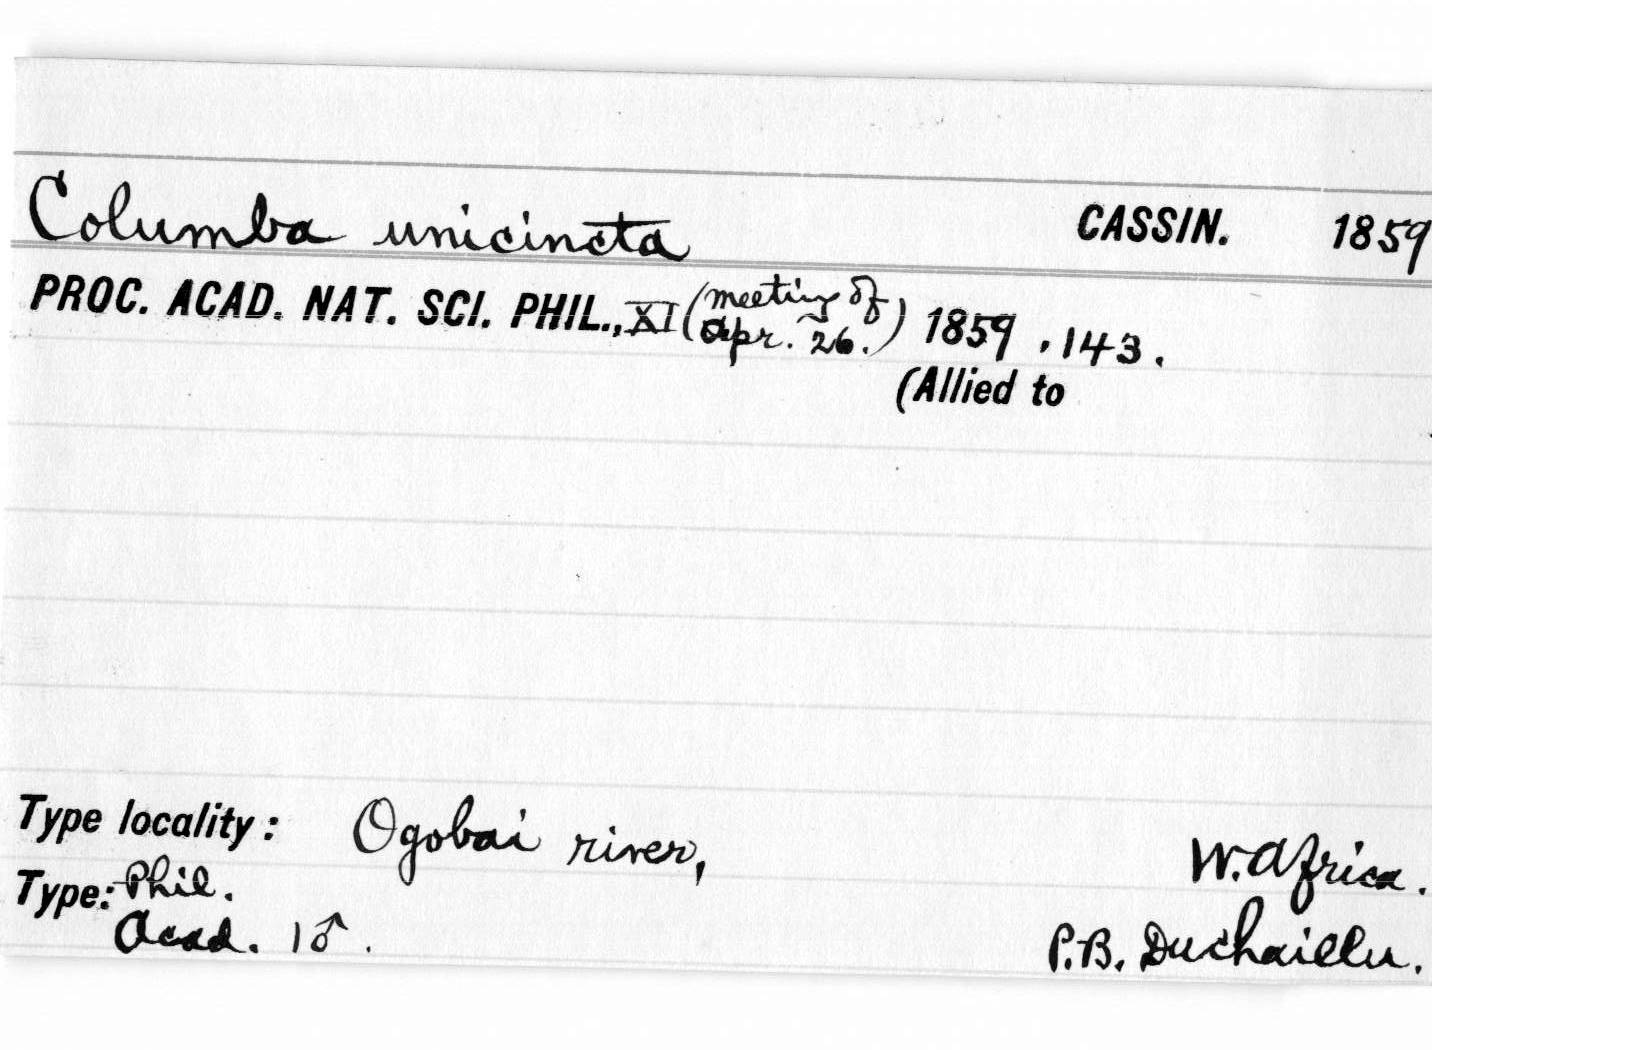 Columba unicincta CASSIN. 1859
PROC. ACAD. NAT. SCI. PHIL., XI (meeting of Apr. 26.) 1859, 143.
(Allied to
Type locality: Ogobai river, W. Africa.
Type: Phil.
Acad. 1♂. P.B. Duchaillu.